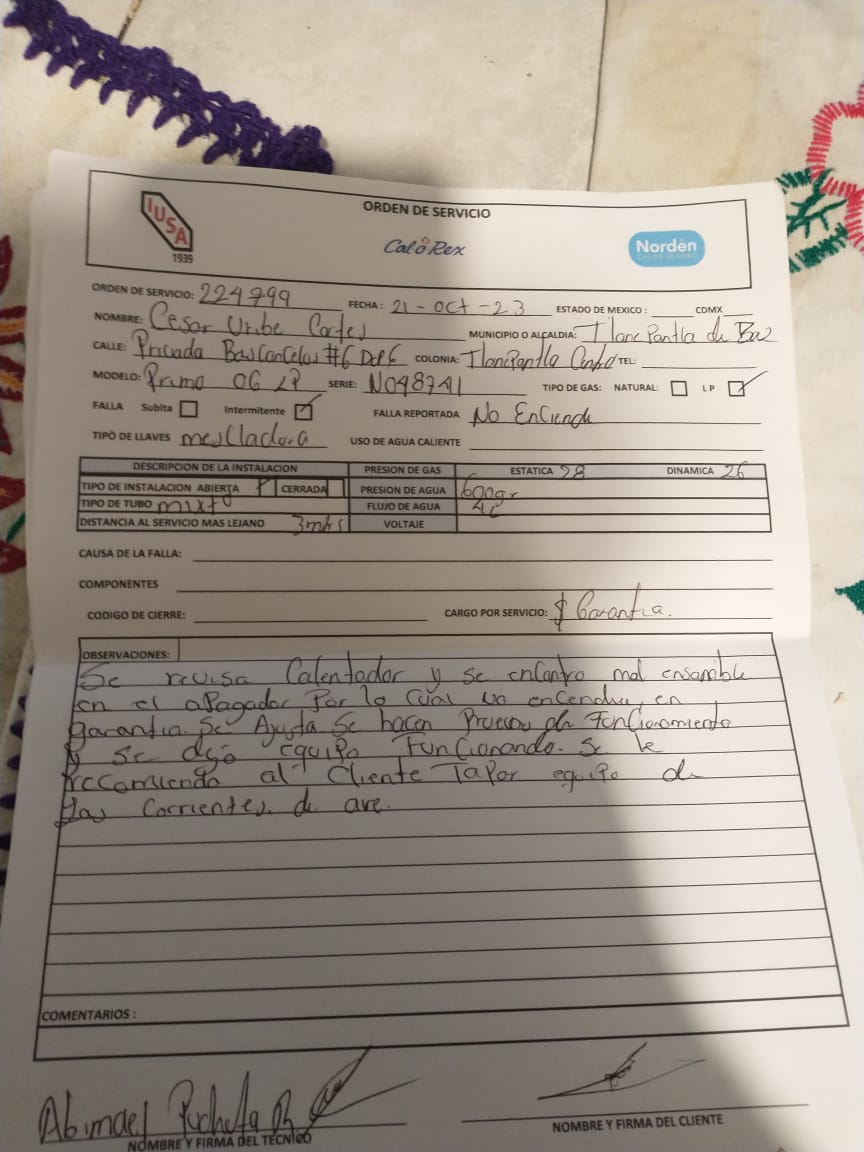 ORDEN DE SERVICIO
IUSA
1939
CaloRex
Nordén
ORDEN DE SERVICIO: 224799 FECHA: 21-oct-23 ESTADO DE MEXICO: CDMX
NOMBRE: Cesar Uribe Cortes MUNICIPIO O ALCALDIA: TlanePantla de Baz
CALLE: Privada #6 COLONIA: TlanePantla TEL:
MODELO: Primo 06 LP SERIE: N048741 TIPO DE GAS: NATURAL: LP
FALLA Subita Intermitente FALLA REPORTADA No Enciende
TIPO DE LLAVES mescladora USO DE AGUA CALIENTE
DESCRIPCION DE LA INSTALACION PRESION DE GAS ESTATICA 28 DINAMICA 26
TIPO DE INSTALACION ABIERTA CERRADA PRESION DE AGUA 600gr
TIPO DE TUBO mixto FLUJO DE AGUA 4L
DISTANCIA AL SERVICIO MAS LEJANO 3mtrs VOLTAJE
CAUSA DE LA FALLA:
COMPONENTES
CODIGO DE CIERRE: CARGO POR SERVICIO: $ Garantia.
OBSERVACIONES:
Se revisa Calentador y se encontro mal ensamble
en el aPagador Por lo cual no encendia, en
garantia. Se Ajusta Se hacen Pruebas de Funcionamiento
y se dejo equipo Funcionando. Se le
recomienda al Cliente TaPar equipo de
las Corrientes de aire.
COMENTARIOS :
Abimael
NOMBRE Y FIRMA DEL TECNICO NOMBRE Y FIRMA DEL CLIENTE